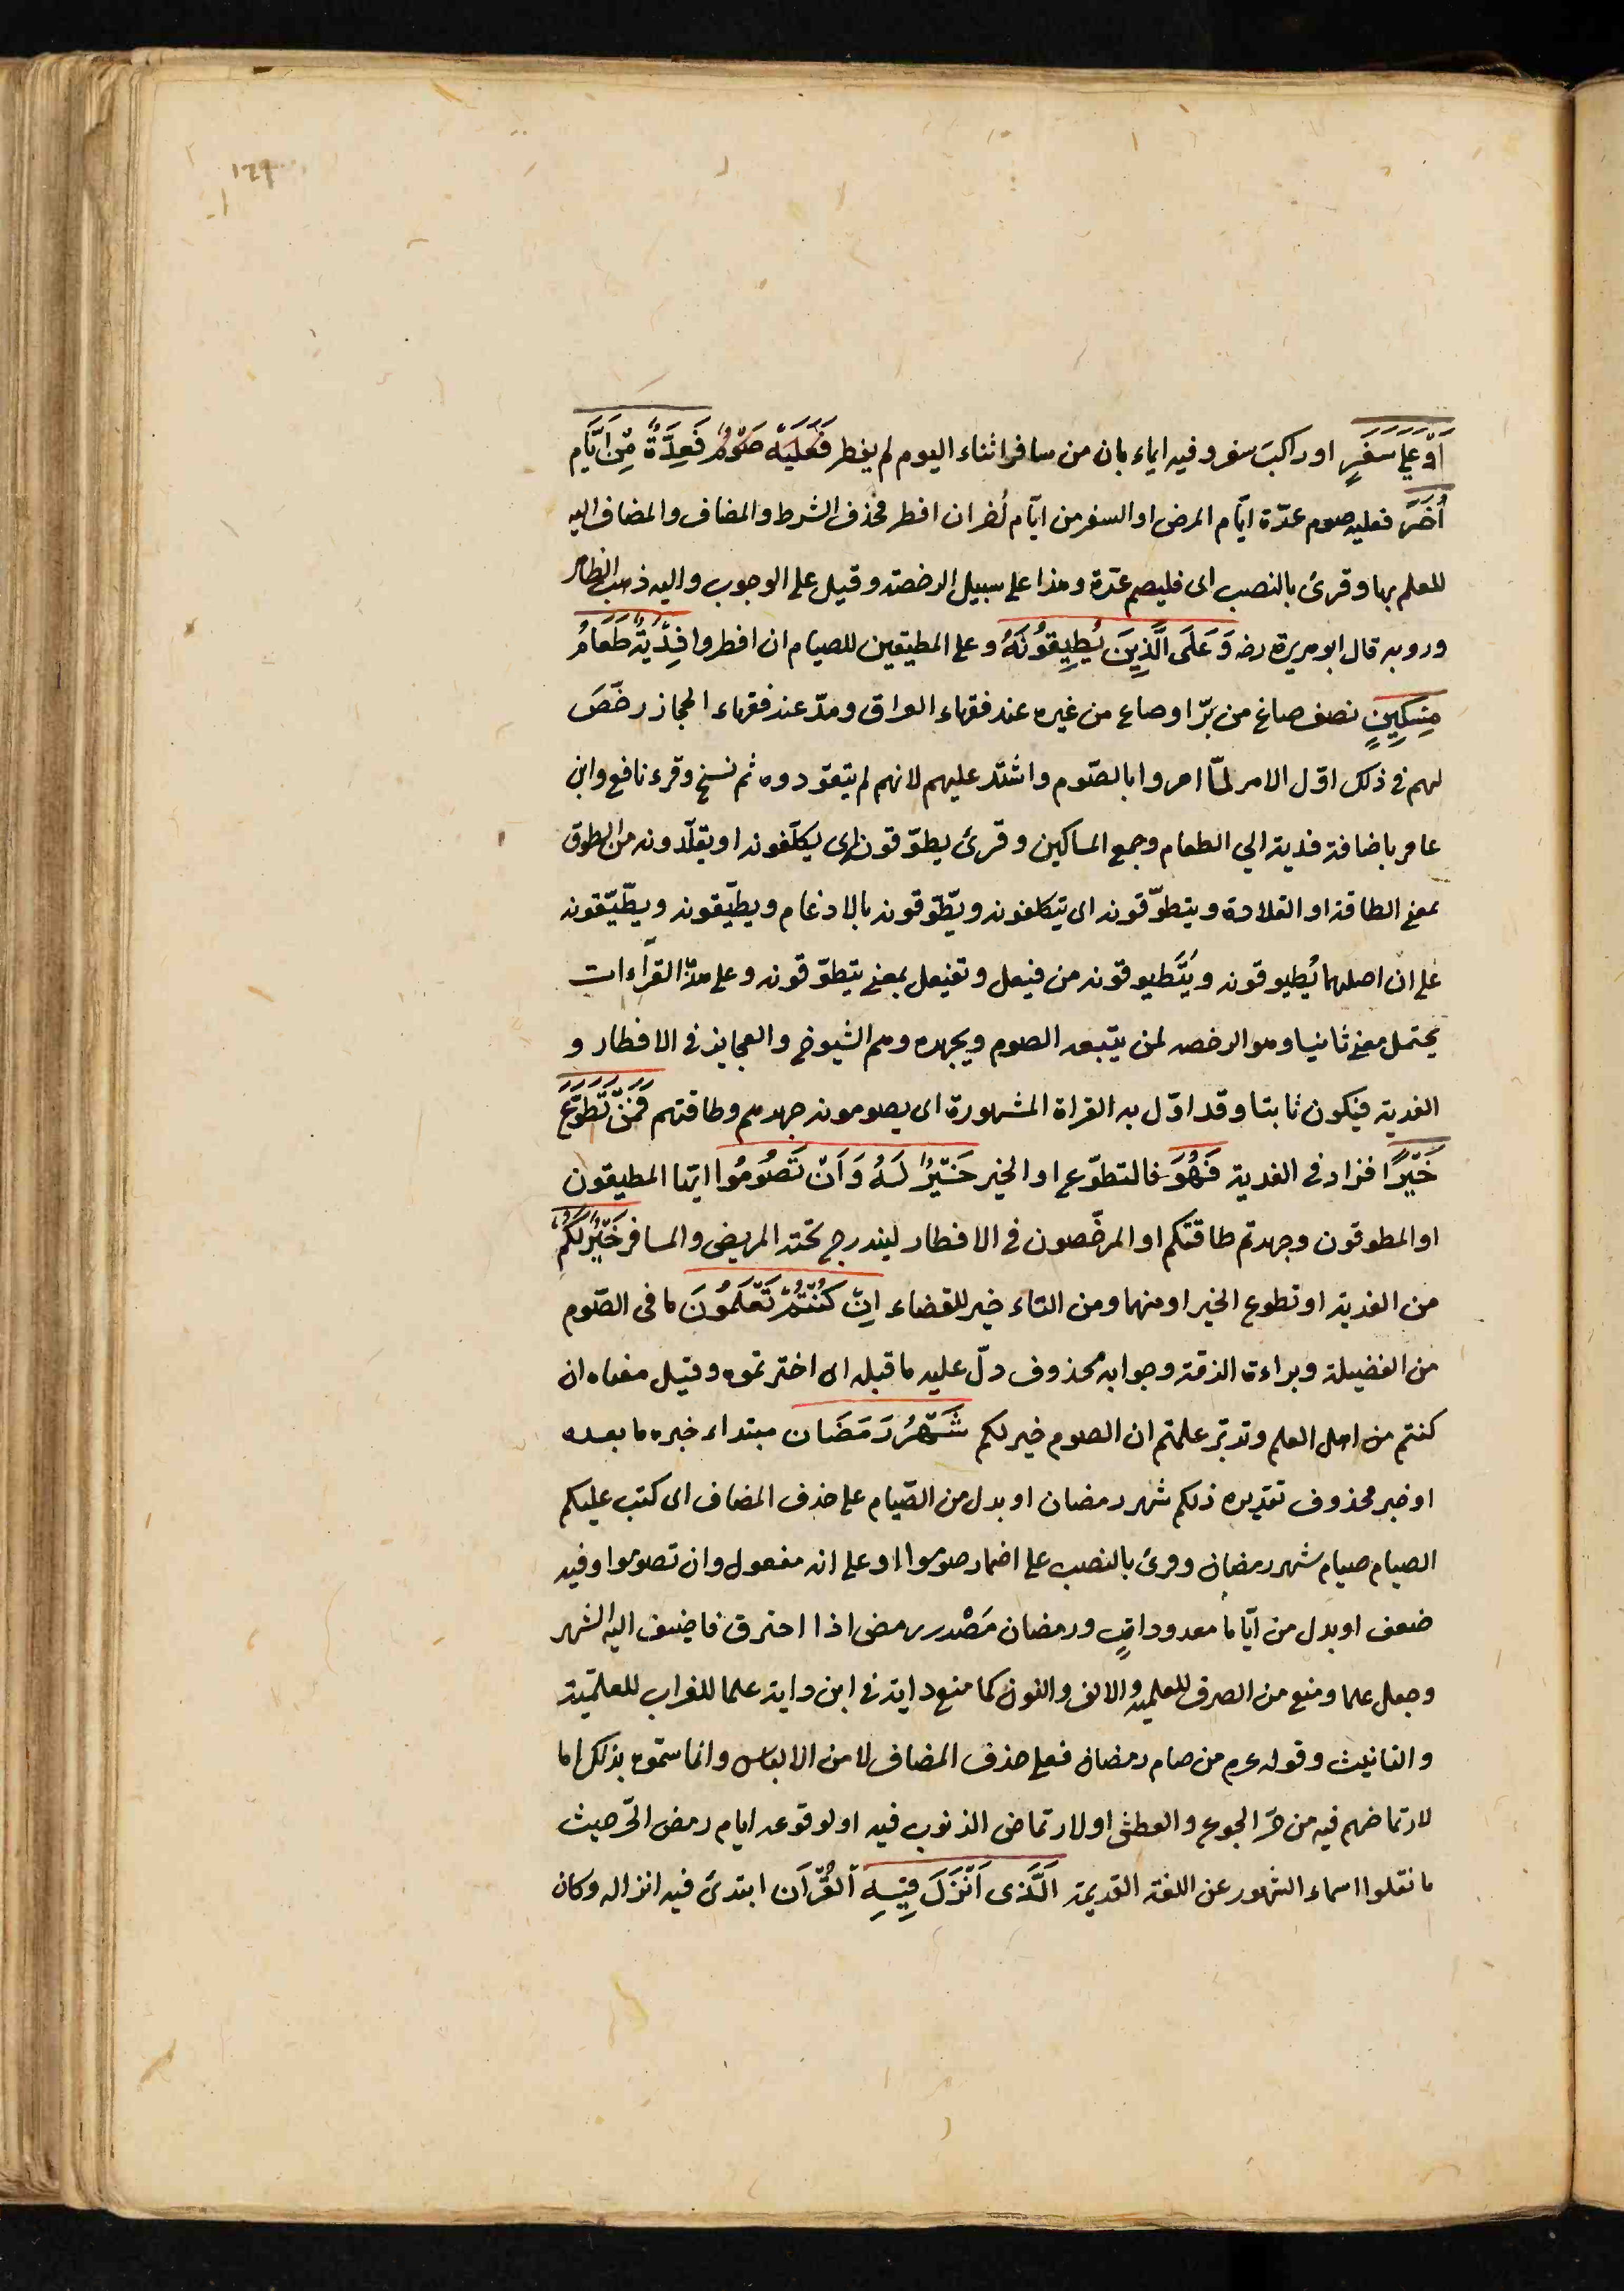 ١٢٩
اَوْ عَلٰى سَفَرٍ او راكب سفر وفيه ايماء بان من سافر اثناء اليوم لم يفطر فَعَلَيْهِ صَوْمُ فَعِدَّةٌ مِنْ اَيَّامٍ
اُخَرَ فعليه صوم عدّة ايّام المرض او السفر من ايّام اُخر ان افطر فحذف الشرط والمضاف والمضاف اليه
للعلم بها وقرئ بالنصب اى فليصم عدّة وهذا على سبيل الرخصة وقيل على الوجوب واليه ذهب الظاهر
وروبه قال ابو هريرة رضه وَعَلَى الَّذِينَ يُطِيقُونَهُ وعلى المطيقين للصيام ان افطروا فِدْيَةٌ طَعَامُ
مِسْكِينٍ نصف صاع من برّ او صاع من غيره عند فقهاء العراق ومدّ عند فقهاء الحجاز رخّصَ
لهم فى ذلك اوّل الامر لمّا امروا بالصّوم واشتد عليهم لانهم لم يتعوّدوه ثم نسخ وقرء نافع وابن
عامر باضافة فدية الي الطعام وجمع المساكين وقرئ يطوّقونه اى يكلّفونه او يقلّدونه من الطوق
بمعنى الطاقة او القلادة ويتطوّقونه اى يتكلفونه ويطّوّقونه بالادغام ويطيّقونه ويطّيّقونه
على ان اصلهما يُطيوقونه ويَتَطيوقونه من فيعل وتفيعل بمعنى يتطوّقونه وعلى هذه القراءات
يحتمل معنى ثانيا وهو الرخصه لمن يتبعه الصوم ويجهده وهم الشيوخ والعجايز فى الافطار و
الفدية فيكون ثابتا وقد اوّل به القراة المشهورة اى يصومونه جهدهم وطاقتهم فَمَنْ تَطَوَّعَ
خَيْرًا فزاد فى الفدية فَهُوَ فالتطوّع او الخير خَيْرٌ لَهُ وَاَنْ تَصُومُوا ايّها المطيقون
او المطوقون وجهدتم طاقتكم او المرخّصون فى الافطار ليندرج تحته المريض والمسافر خَيْرٌ لَكُمْ
من الفدية او تطوع الخير او منهما ومن التاء خير للقضاء اِنْ كُنْتُمْ تَعْلَمُونَ ما فى الصّوم
من الفضيلة وبراءة الذمّة وجوابه محذوف دلّ عليه ما قبله اى اخترتموه وقيل معناه ان
كنتم من اهل العلم وتدبّر علمتم ان الصوم خير لكم شَهْرُ رَمَضَان مبتداء خبره ما بعده
او خبر محذوف تقديره ذلكم شهر رمضان او بدل من الصّيام على حذف المضاف اى كتب عليكم
الصيام صيام شهر رمضان وقرئ بالنصب على اضمار صوموا او على انه مفعول وان تصوموا وفيه
ضعف او بدل من ايّاما معدوداتٍ ورمضان مَصْدر رمض اذا احترق فاضيف اليه الشهر
وجعل علما ومنع من الصرف للعلميه والالف والنون كما منع داية فى ابن داية علما للغراب للعلميّة
والتانيث وقوله عم من صام رمضان فعلى حذف المضاف لامن الالباس وانما سمّوه بذلك اما
لارتماضهم فيه من حرّ الجوع والعطش او لارتماض الذنوب فيه او لوقوعه ايام رمض الحرّ حيث
ما نقلوا اسماء الشهور عن اللغة القديمة اَلَّذى اُنْزِلَ فِيهِ اَلْقُرْآن ابتدئ فيه انزاله وكان